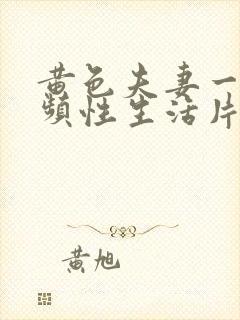 黄色夫妻一
频性生活片
黄旭